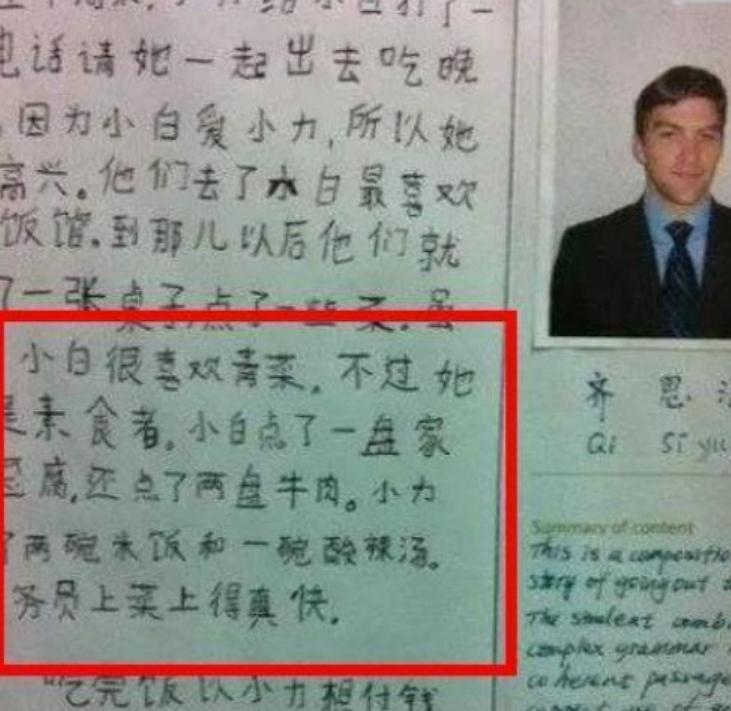 电话请她一起出去吃晚
因为小白爱小力,所以她
高兴。他们去了小白最喜欢
饭馆.到那儿以后他们就
了一张桌子,点了一些菜.虽
小白很喜欢青菜,不过她
是素食者.小白点了一盘家
豆腐,还点了两盘牛肉。小力
了两碗米饭和一碗酸辣汤。
务员上菜上得真快.
吃完饭以小力想付钱
齐思
Qi Si yu
Summary of content
This is a compositio
story of going out
The student comb
complex grammar
coherent passage